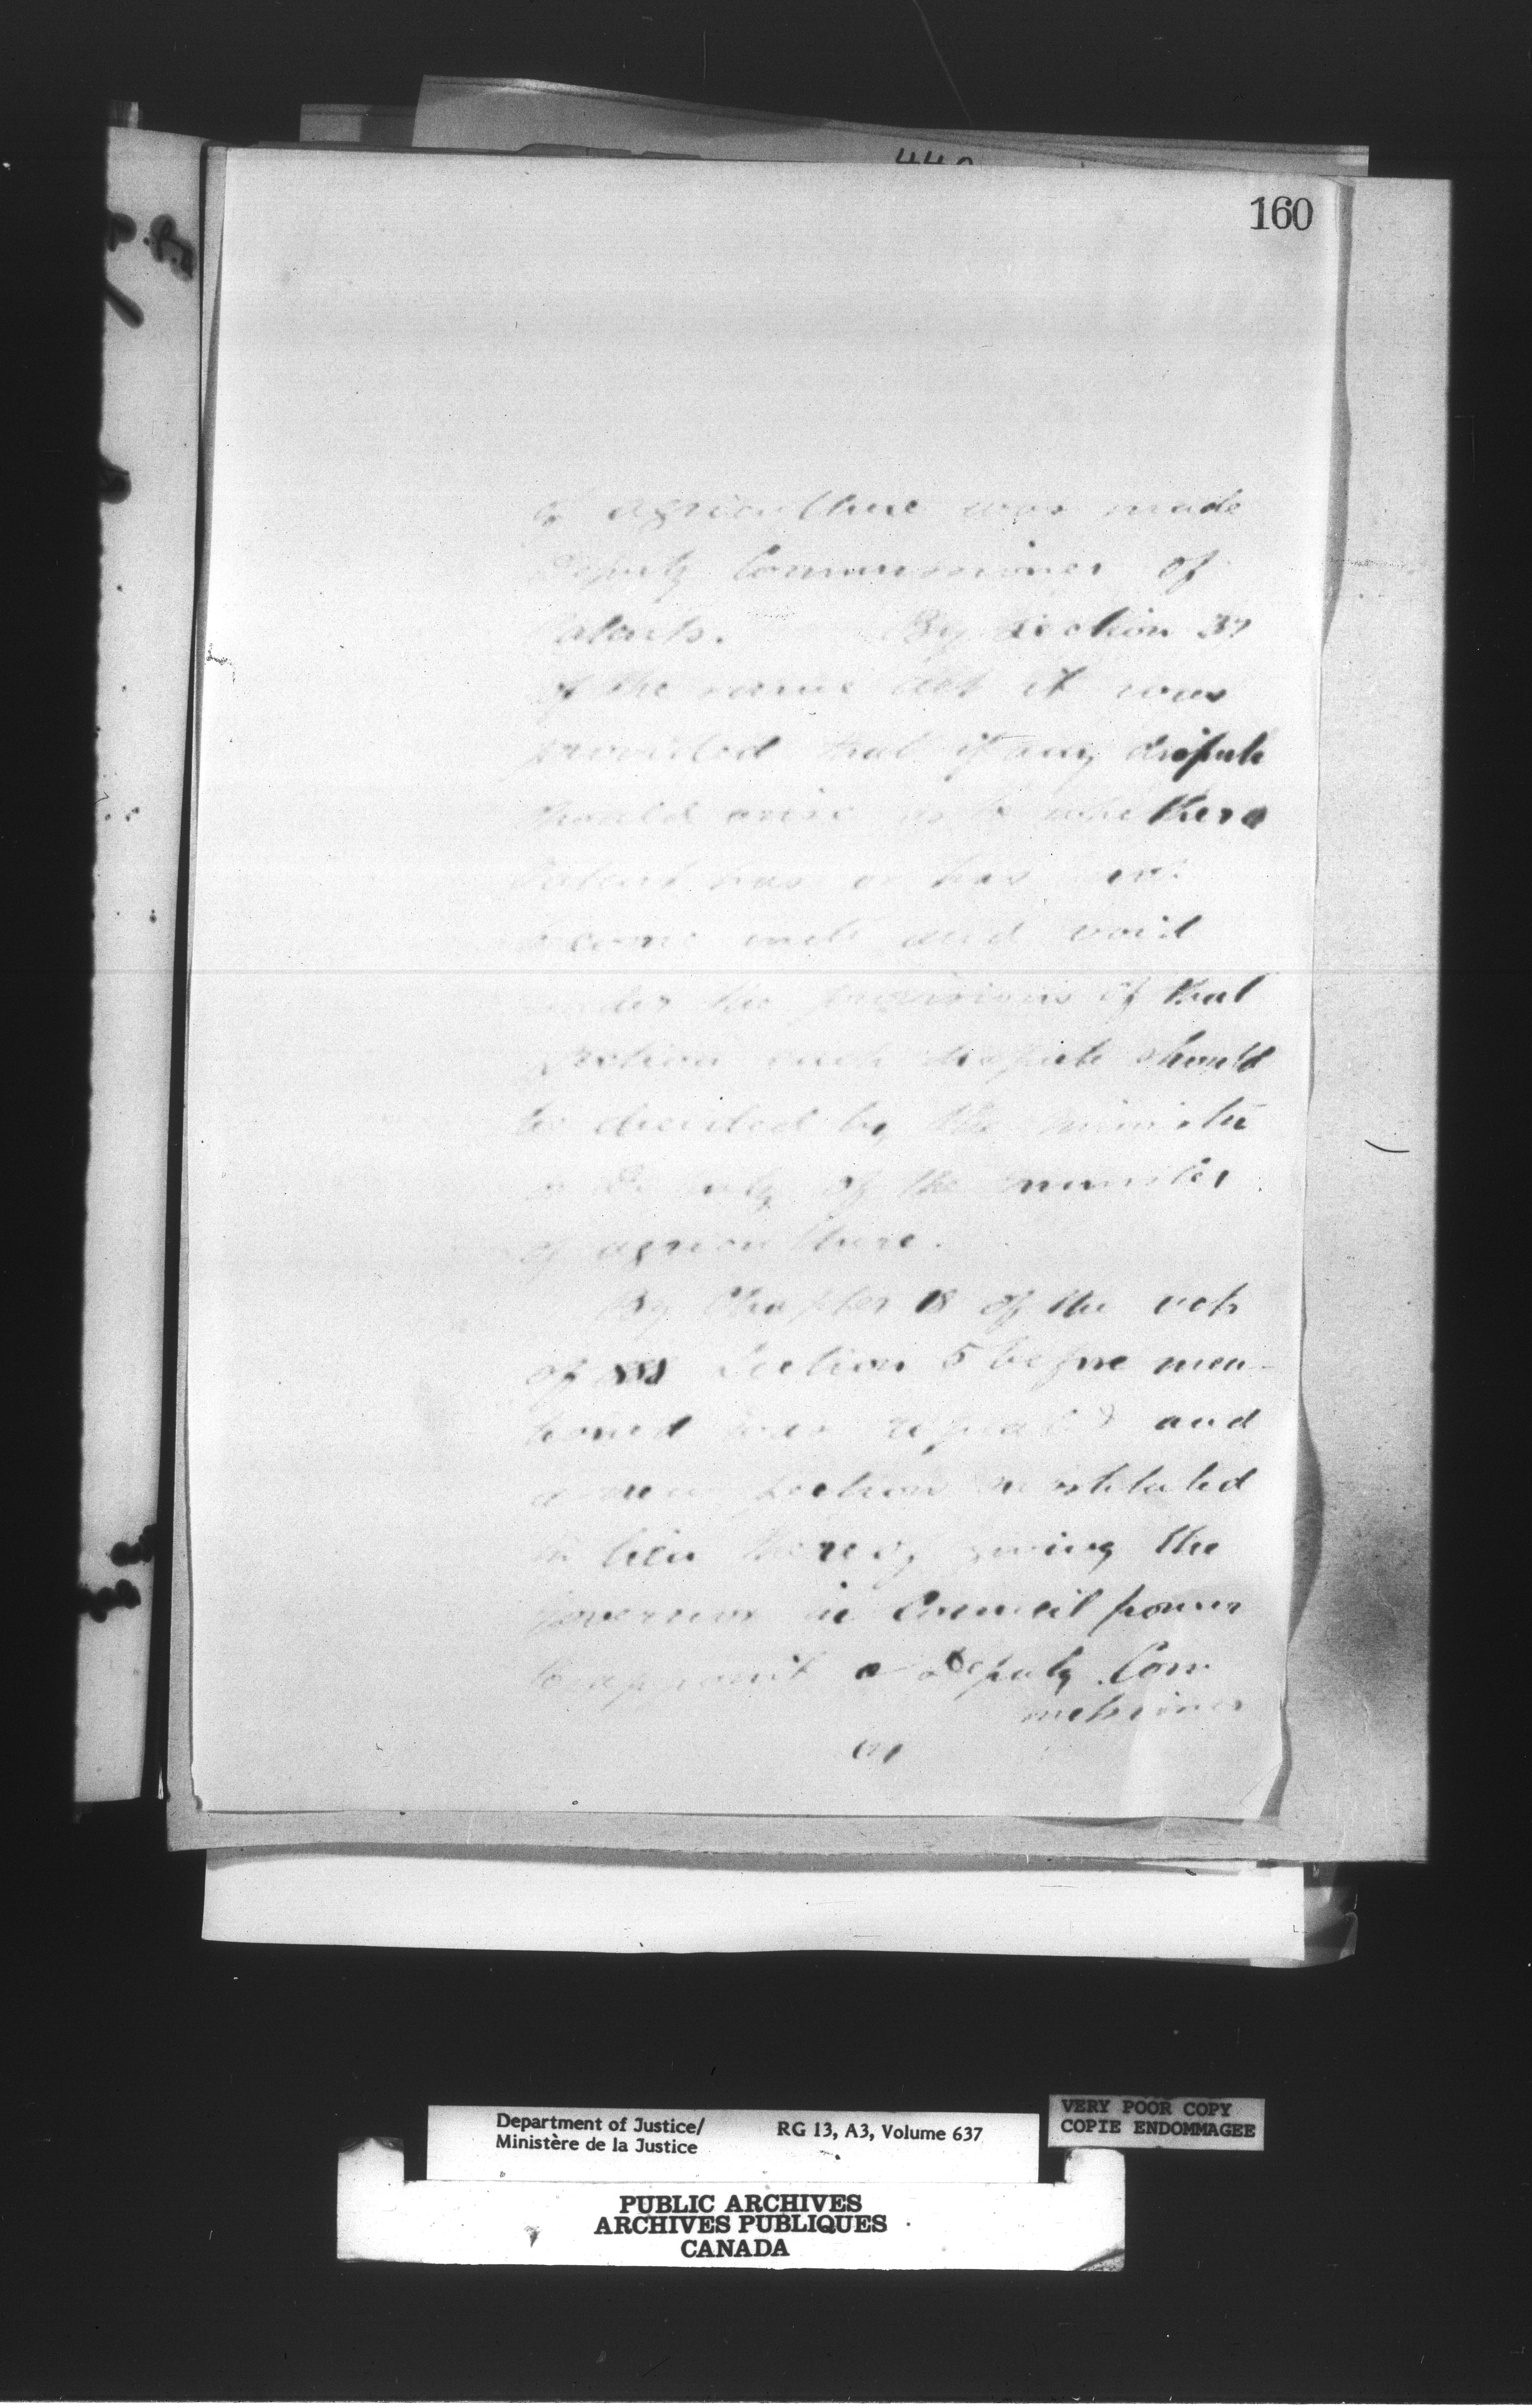 160
of agriculture was made
Deputy Commissioner of
Patents. By Section 37
of the same act it was
provided that if any dispute
should arise as to whether a
Patent has or has
become null and void
under the provisions of that
Section such dispute should
be decided by the minister
or Deputy of the minister
of agriculture.
By Chapter 18 of the acts
of 1888 Section 5 before men-
tioned was repealed and
a new section substituted
in lieu thereof giving the
Governor in Council power
to appoint a Deputy Com
missioner
of
Department of Justice/
Ministère de la Justice
RG 13, A3, Volume 637
VERY POOR COPY
COPIE ENDOMMAGEE
PUBLIC ARCHIVES
ARCHIVES PUBLIQUES
CANADA